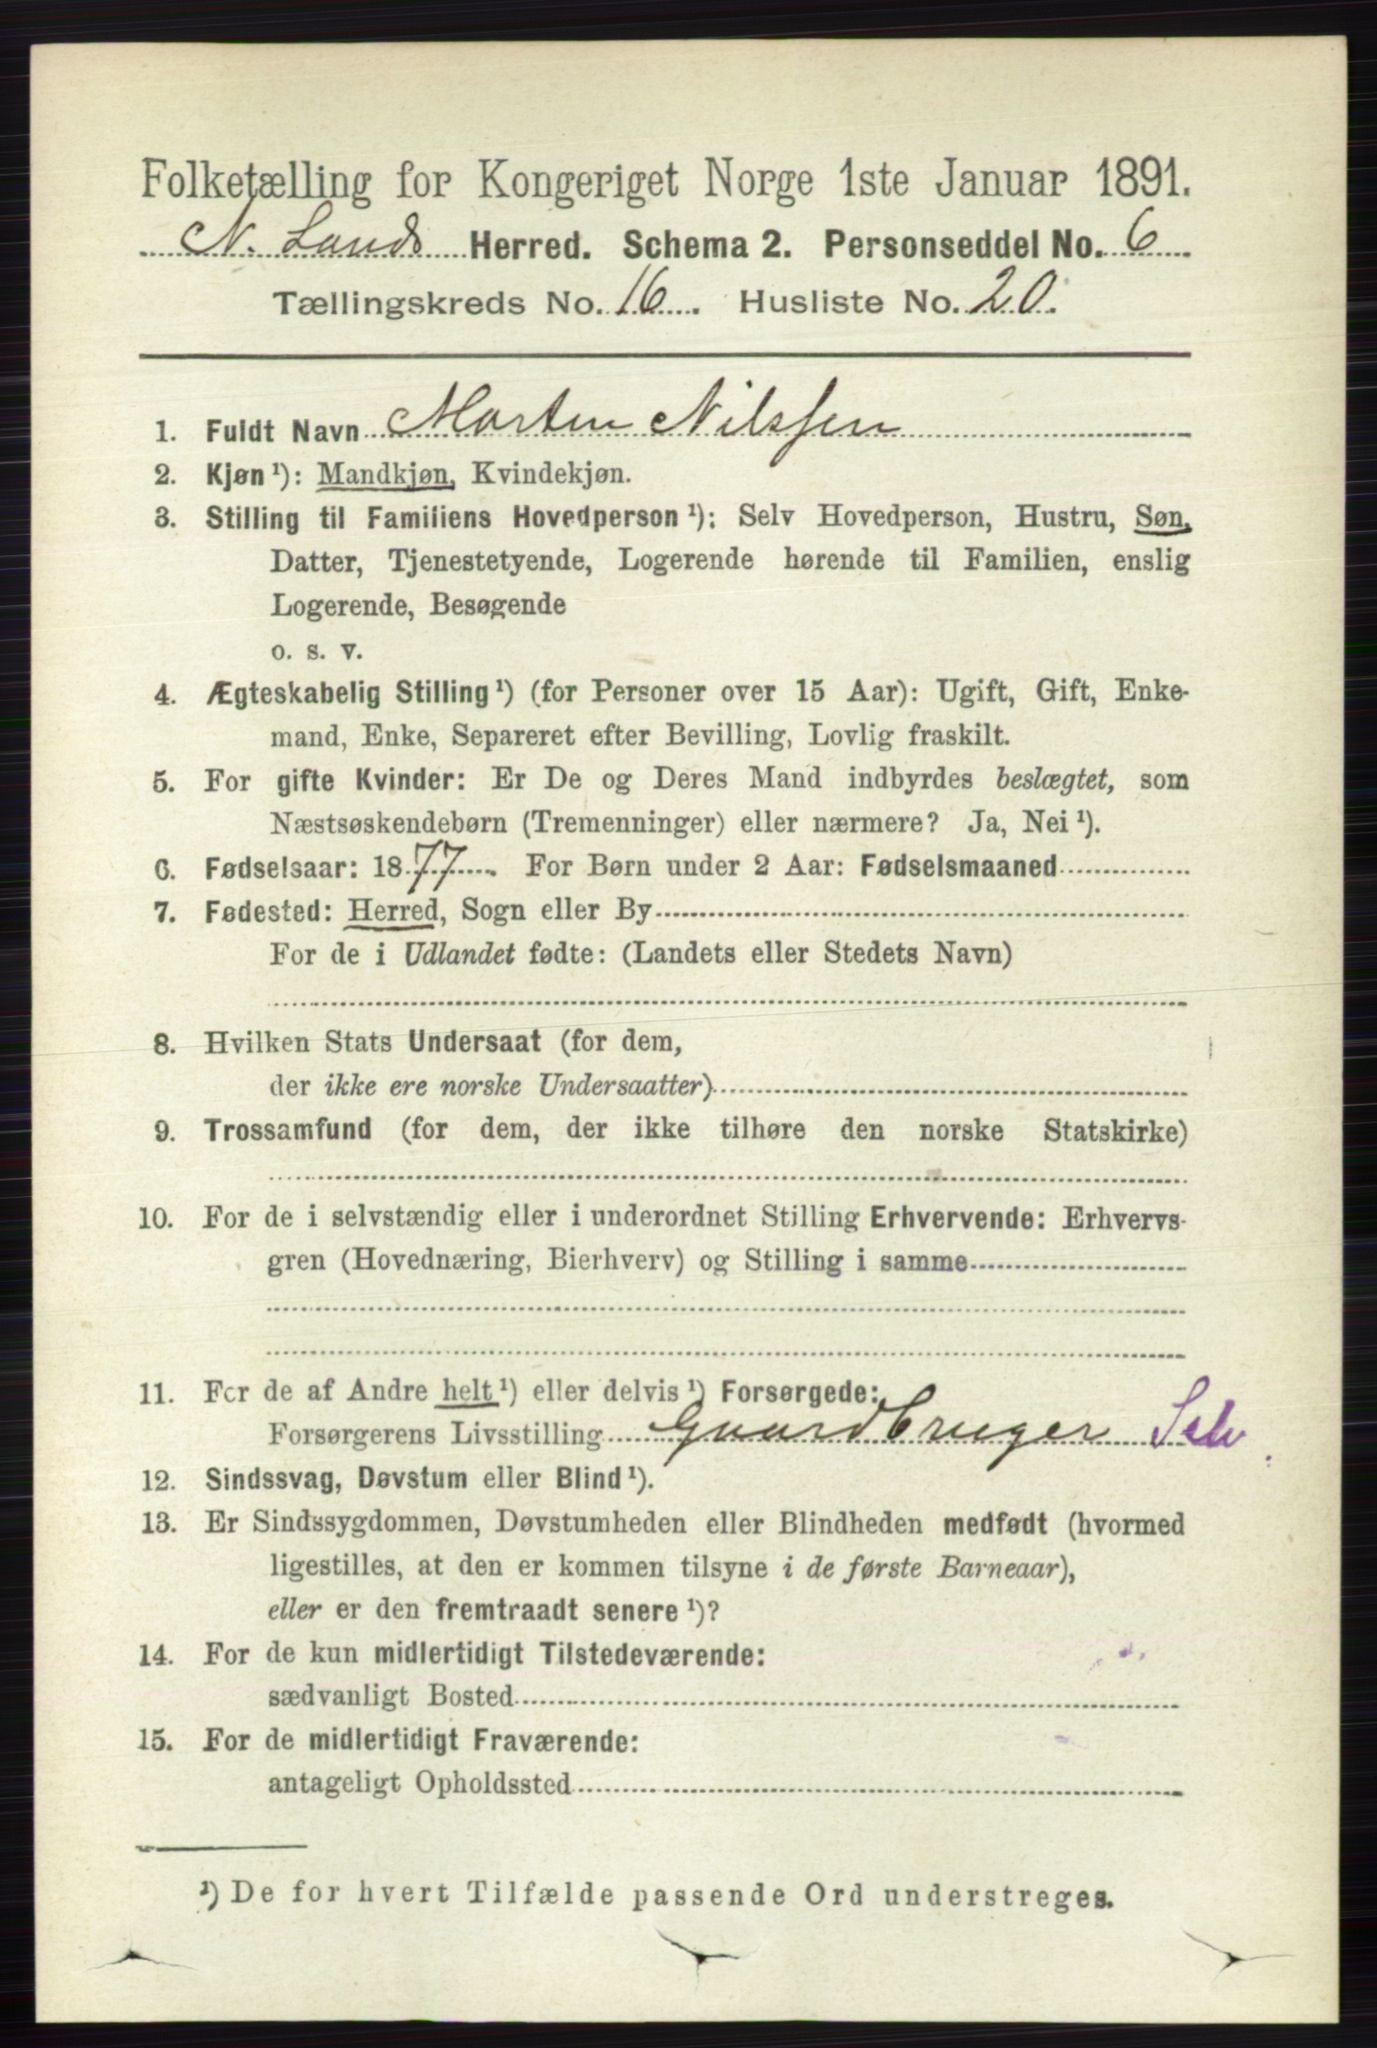 Folketælling for Kongeriget Norge 1ste Januar 1891.
N. Lands Herred. Schema 2. Personseddel No. 6
Tællingskreds No. 16. Husliste No. 20.
1. Fuldt Navn Morten Nilssen
2. Kjøn¹): Mandkjøn, Kvindekjøn.
3. Stilling til Familiens Hovedperson¹): Selv Hovedperson, Hustru, Søn,
Datter, Tjenestetyende, Logerende hørende til Familien, enslig
Logerende, Besøgende
o. s. v.
4. Ægteskabelig Stilling¹) (for Personer over 15 Aar): Ugift, Gift, Enke-
mand, Enke, Separeret efter Bevilling, Lovlig fraskilt.
5. For gifte Kvinder: Er De og Deres Mand indbyrdes beslægtet, som
Næstsøskendebørn (Tremenninger) eller nærmere? Ja, Nei¹).
6. Fødselsaar: 1877. For Børn under 2 Aar: Fødselsmaaned
7. Fødested: Herred, Sogn eller By
For de i Udlandet fødte: (Landets eller Stedets Navn)
8. Hvilken Stats Undersaat (for dem,
der ikke ere norske Undersaatter)
9. Trossamfund (for dem, der ikke tilhøre den norske Statskirke)
10. For de i selvstændig eller i underordnet Stilling Erhvervende: Erhvervs-
gren (Hovednæring, Bierhverv) og Stilling i samme
11. For de af Andre helt¹) eller delvis¹) Forsørgede:
Forsørgerens Livsstilling Gaardbruger Selv
12. Sindssvag, Døvstum eller Blind¹).
13. Er Sindssygdommen, Døvstumheden eller Blindheden medfødt (hvormed
ligestilles, at den er kommen tilsyne i de første Barneaar),
eller er den fremtraadt senere¹)?
14. For de kun midlertidigt Tilstedeværende:
sædvanligt Bosted
15. For de midlertidigt Fraværende:
antageligt Opholdssted
¹) De for hvert Tilfælde passende Ord understreges.